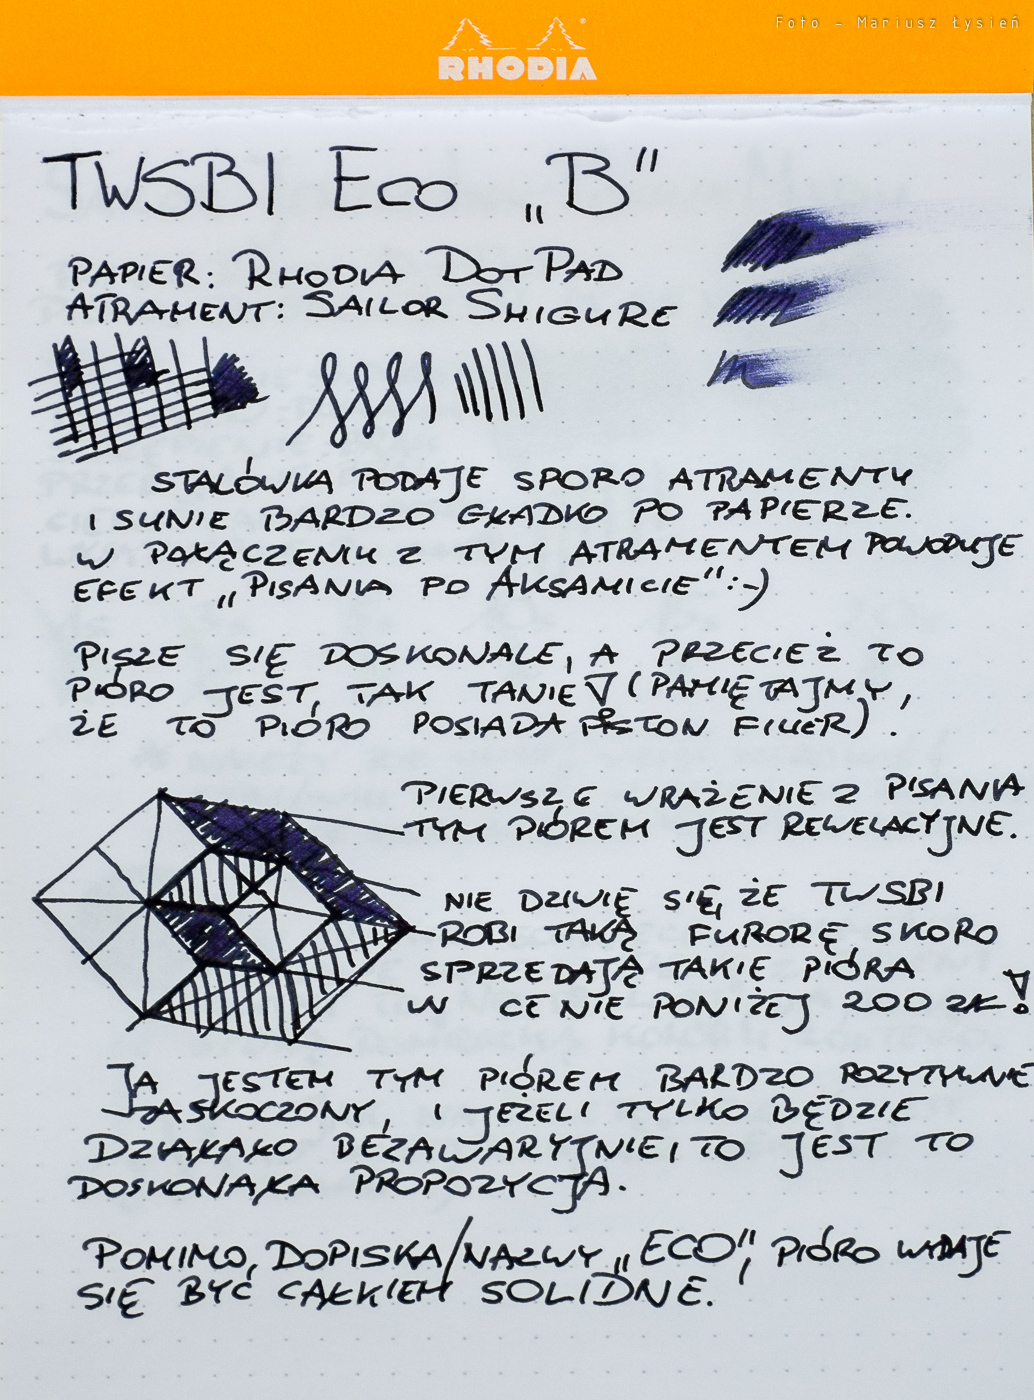 Foto - Mariusz Łysień
RHODIA
TWSBI Eco „B"
PAPIER: RHODIA DOT PAD
ATRAMENT: SAILOR SHIGURE
STALÓWKA PODAJE SPORO ATRAMENTU
I SUNIE BARDZO GŁADKO PO PAPIERZE.
W POŁĄCZENIU Z TYM ATRAMENTEM POWODUJE
EFEKT „PISANIA PO AKSAMICIE" :-)
PISZE SIĘ DOSKONALE, A PRZECIEŻ TO
PIÓRO JEST, TAK TANIE! (PAMIĘTAJMY,
ŻE TO PIÓRO POSIADA PISTON FILLER).
PIERWSZE WRAŻENIE Z PISANIA
TYM PIÓREM JEST REWELACYJNE.
NIE DZIWIĘ SIĘ, ŻE TWSBI
ROBI TAKĄ FURORĘ, SKORO
SPRZEDAJĄ TAKIE PIÓRA
W CENIE PONIŻEJ 200 ZŁ!
JA JESTEM TYM PIÓREM BARDZO POZYTYWNIE
ZASKOCZONY, I JEŻELI TYLKO BĘDZIE
DZIAŁAŁO BEZAWARYJNIE, TO JEST TO
DOSKONAŁA PROPOZYCJA.
POMIMO, DOPISKA/NAZWY „ECO", PIÓRO WYDAJE
SIĘ BYĆ CAŁKIEM SOLIDNE.